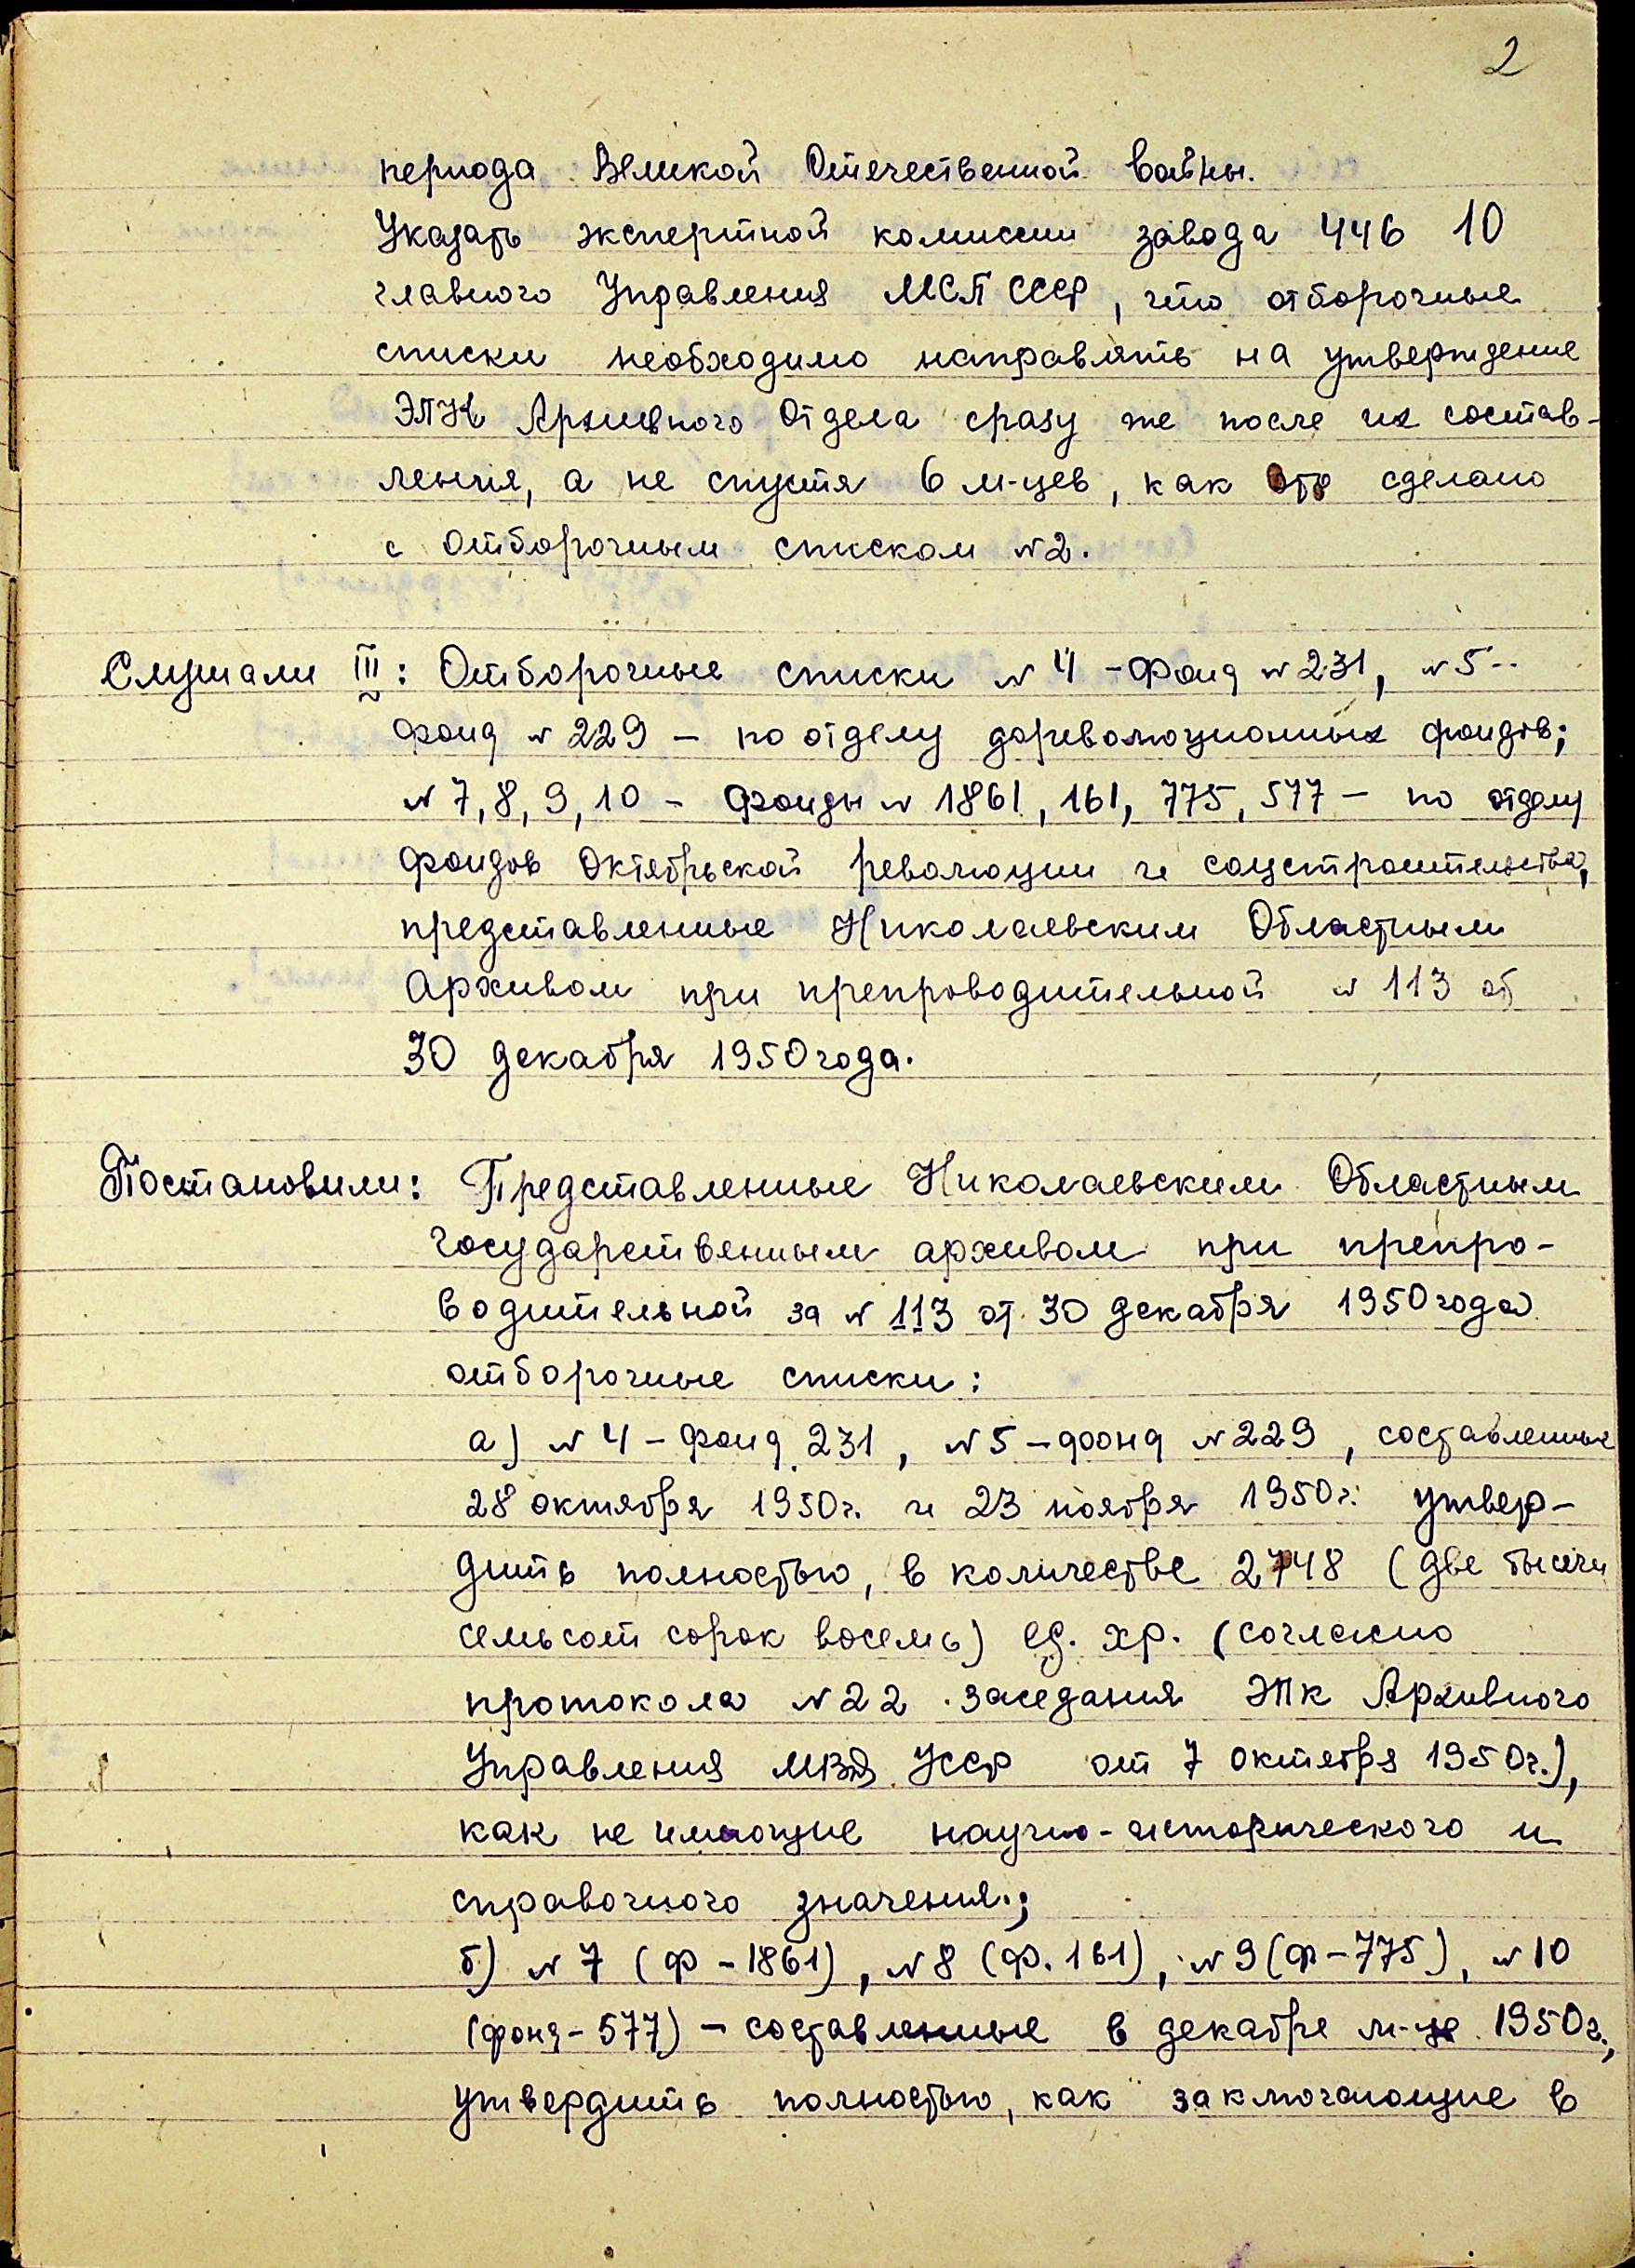 2
периода Великой Отечественной войны.
Указать экспертной комиссии завода 446 10
главного Управления МСП СССР, что отборочные
списки необходимо направлять на утверждение
ЭПК Архивного Отдела сразу же после их состав-
ления, а не спустя 6 м-цев, как это сделано
с отборочным списком №2.
Слушали III: Отборочные списки № 4 - Фонд № 231, № 5 -
фонд № 229 - по отделу дореволюционных фондов;
№ 7, 8, 9, 10 - Фонды № 1861, 161, 775, 577 - по отделу
фондов Октябрьской революции и соцстроительства,
представленные Николаевским Областным
Архивом при препроводительной № 113 от
30 декабря 1950 года.
Постановили: Представленные Николаевским Областным
Государственным архивом при препро-
водительной за № 113 от 30 декабря 1950 года
отборочные списки:
а) № 4 - фонд 231, № 5 - фонд № 229, составленные
28 октября 1950г. и 23 ноября 1950г. утвер-
дить полностью, в количестве 2748 (две тысячи
семьсот сорок восемь) ед. хр. (согласно
протокола № 22 заседания ЭПК Архивного
Управления МВД УССР от 7 октября 1950г.),
как не имеющие научно-исторического и
справочного значения.;
б) № 7 (Ф - 1861), № 8 (Ф. 161), № 9 (Ф - 775), № 10
(фонд - 577) - составленные в декабре м-це 1950г.,
утвердить полностью, как заключающие в